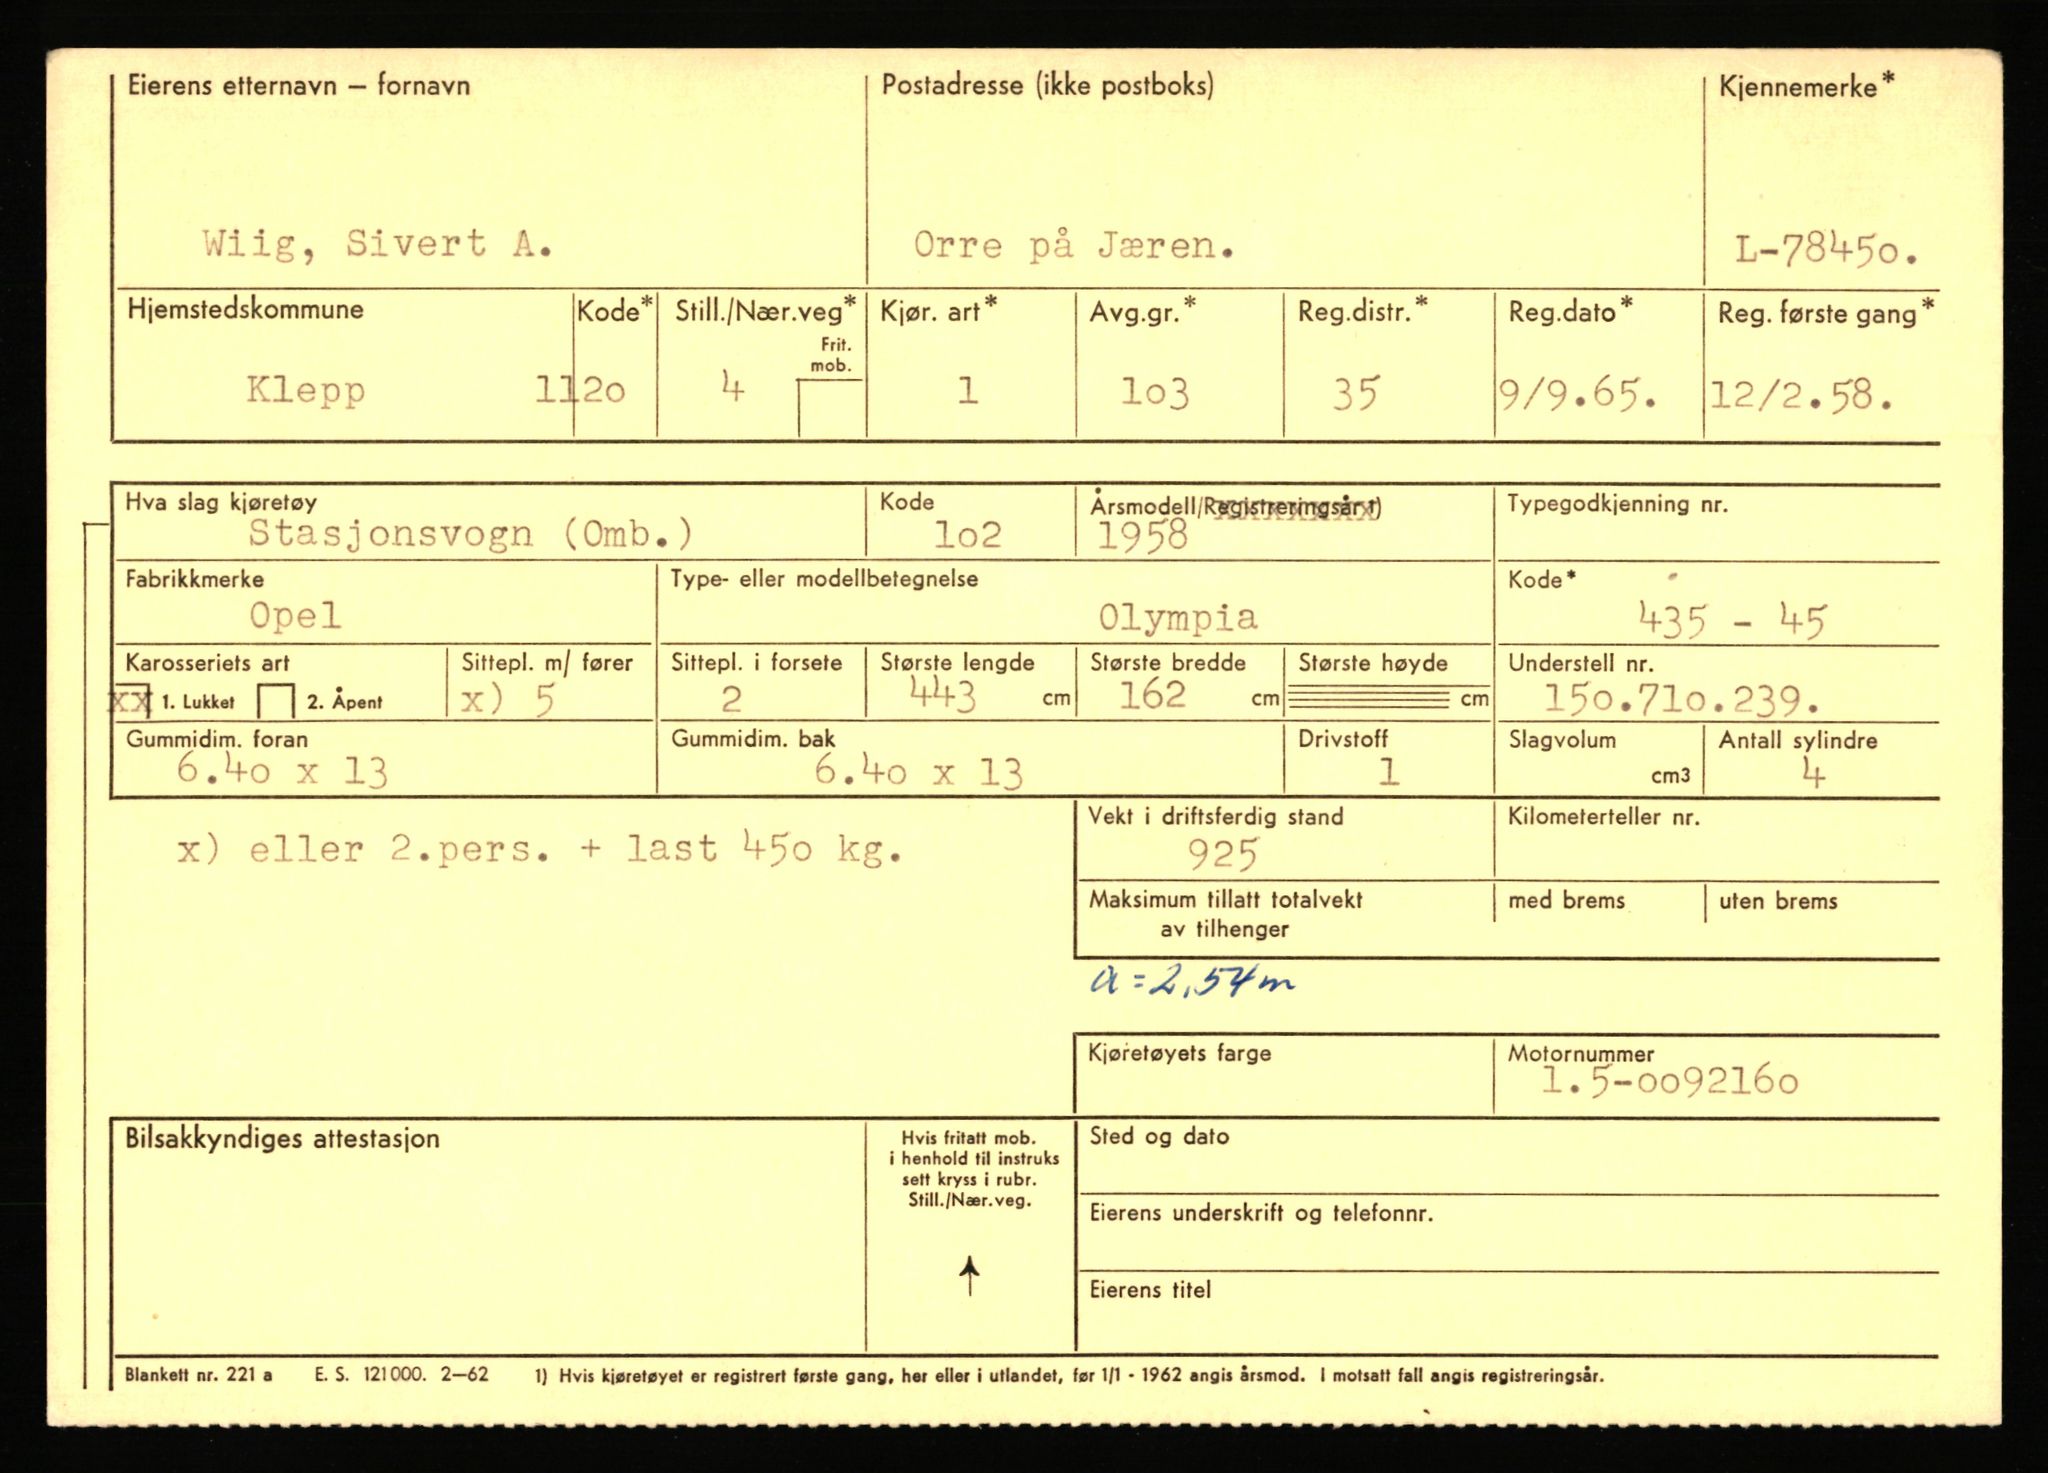 Eierens etternavn – fornavn
Postadresse (ikke postboks)
Kjennemerke*
Wiig, Sivert A.
Orre på Jæren.
L-78450.
Hjemstedskommune
Kode*
Still./Nær.veg*
Frit.
mob.
Kjør. art*
Avg.gr.*
Reg.distr.*
Reg.dato*
Reg. første gang*
Klepp 1120 4 1 103 35 9/9.65. 12/2.58.
Hva slag kjøretøy
Stasjonsvogn (Omb.)
Kode
102
Årsmodell/Registreringsår 1)
1958
Typegodkjenning nr.
Fabrikkmerke
Opel
Type- eller modellbetegnelse
Olympia
Kode*
435 - 45
Karosseriets art
xx 1. Lukket 2. Åpent
Sittepl. m/ fører
x) 5
Sittepl. i forsete
2
Største lengde
443 cm
Største bredde
162 cm
Største høyde
cm
Understell nr.
150.710.239.
Gummidim. foran
6.40 x 13
Gummidim. bak
6.40 x 13
Drivstoff
1
Slagvolum
cm3
Antall sylindre
4
x) eller 2.pers. + last 450 kg.
Vekt i driftsferdig stand
925
Kilometerteller nr.
Maksimum tillatt totalvekt
av tilhenger
med brems
uten brems
a = 2,54 m
Kjøretøyets farge
Motornummer
1.5-0092160
Bilsakkyndiges attestasjon
Hvis fritatt mob.
i henhold til instruks
sett kryss i rubr.
Still./Nær.veg.
Sted og dato
Eierens underskrift og telefonnr.
Eierens titel
Blankett nr. 221 a E. S. 121000. 2–62 1) Hvis kjøretøyet er registrert første gang, her eller i utlandet, før 1/1 - 1962 angis årsmod. I motsatt fall angis registreringsår.